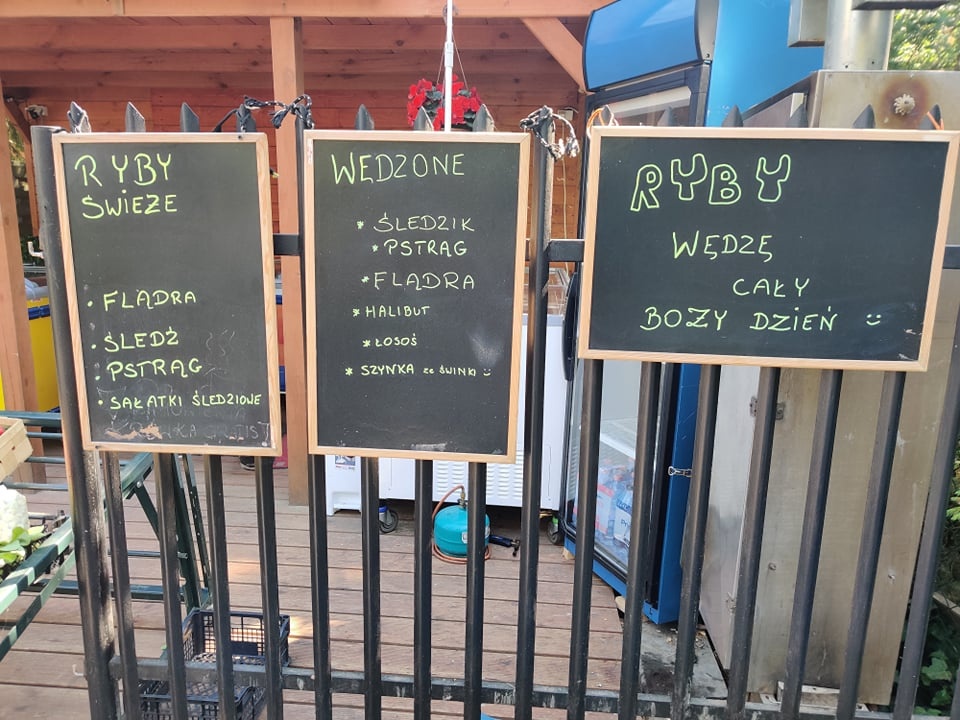 RYBY
ŚWIEŻE
• FLĄDRA
• ŚLEDŹ
• PSTRĄG
• SAŁATKI ŚLEDZIOWE
WĘDZONE
* ŚLEDZIK
* PSTRĄG
* FLĄDRA
* HALIBUT
* ŁOSOŚ
* SZYNKA ze ŚWINKI :)
RYBY
WĘDZĘ
CAŁY
BOŻY DZIEŃ :)